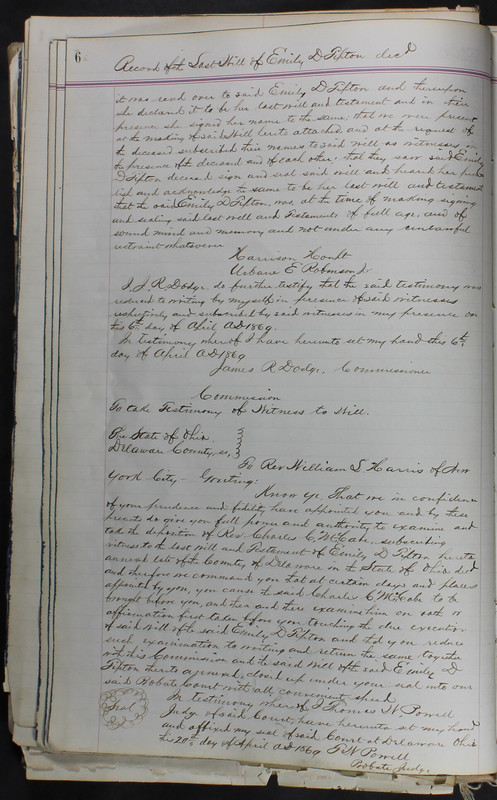 6
Record of the Last Will of Emily D Tipton decd
it was read over to said Emily D Tipton and thereupon
she declared it to be her last will and testament and in their
presence she signed her name to the same, that we were present
at the making of said Will hereto attached and at the request of
the deceased subscribed their names to said will as witnesses, in
the presence of the deceased and of each other; that they saw said Emily
D Tipton deceased sign and seal said will and heard her pub
lish and acknowledge the same to be her last will and testament
that the said Emily D Tipton, was, at the time of making signing
and sealing said last will and Testament of full age, and of
sound mind and memory and not under any unlawful
restraint whatsoever
Harrison
Urbane E Robinson Jr
I. J. R. Dodge do further testify that the said testimony was
reduced to writing by myself in presence of said witnesses
respectively and subscribed by said witnesses in my presence on
this 6th day of April A.D 1869.
In Testimony whereof I have hereunto set my hand this 6th
day of April A.D 1869
James R Dodge, Commissioner
Commission
To take Testimony of Witness to Will.
The State of Ohio
Delaware County, ss,
To Rev William S Harris of New
York City - Greeting:
Know ye That we in confidence
of your prudence and fidelity have appointed you and by these
presents do give you full power and authority to examine and
take the deposition of Rev Charles C McCabe subscribing
witness to the last will and Testament of Emily D Tipton hereto
annexed late of the County of Delaware in the State of Ohio decd
and therefore we command you that at certain days and places
appointed by you, you cause the said Charles C McCabe to be
brought before you, and then and there examine him on oath or
affirmation first taken before you touching the due execution
of said Will of the said Emily D Tipton and that you reduce
such examination to writing and return the same together
with this Commission and the said Will of the said Emily D
Tipton thereto annexed, closed up under your seal into our
said Probate Court with all convenient speed.
Seal
In testimony whereof I Thomas W. Powell
Judge of said Court, have hereunto set my hand
and affixed my seal of said Court at Delaware Ohio
this 20th day of April A.D 1869 T W Powell
Probate Judge.